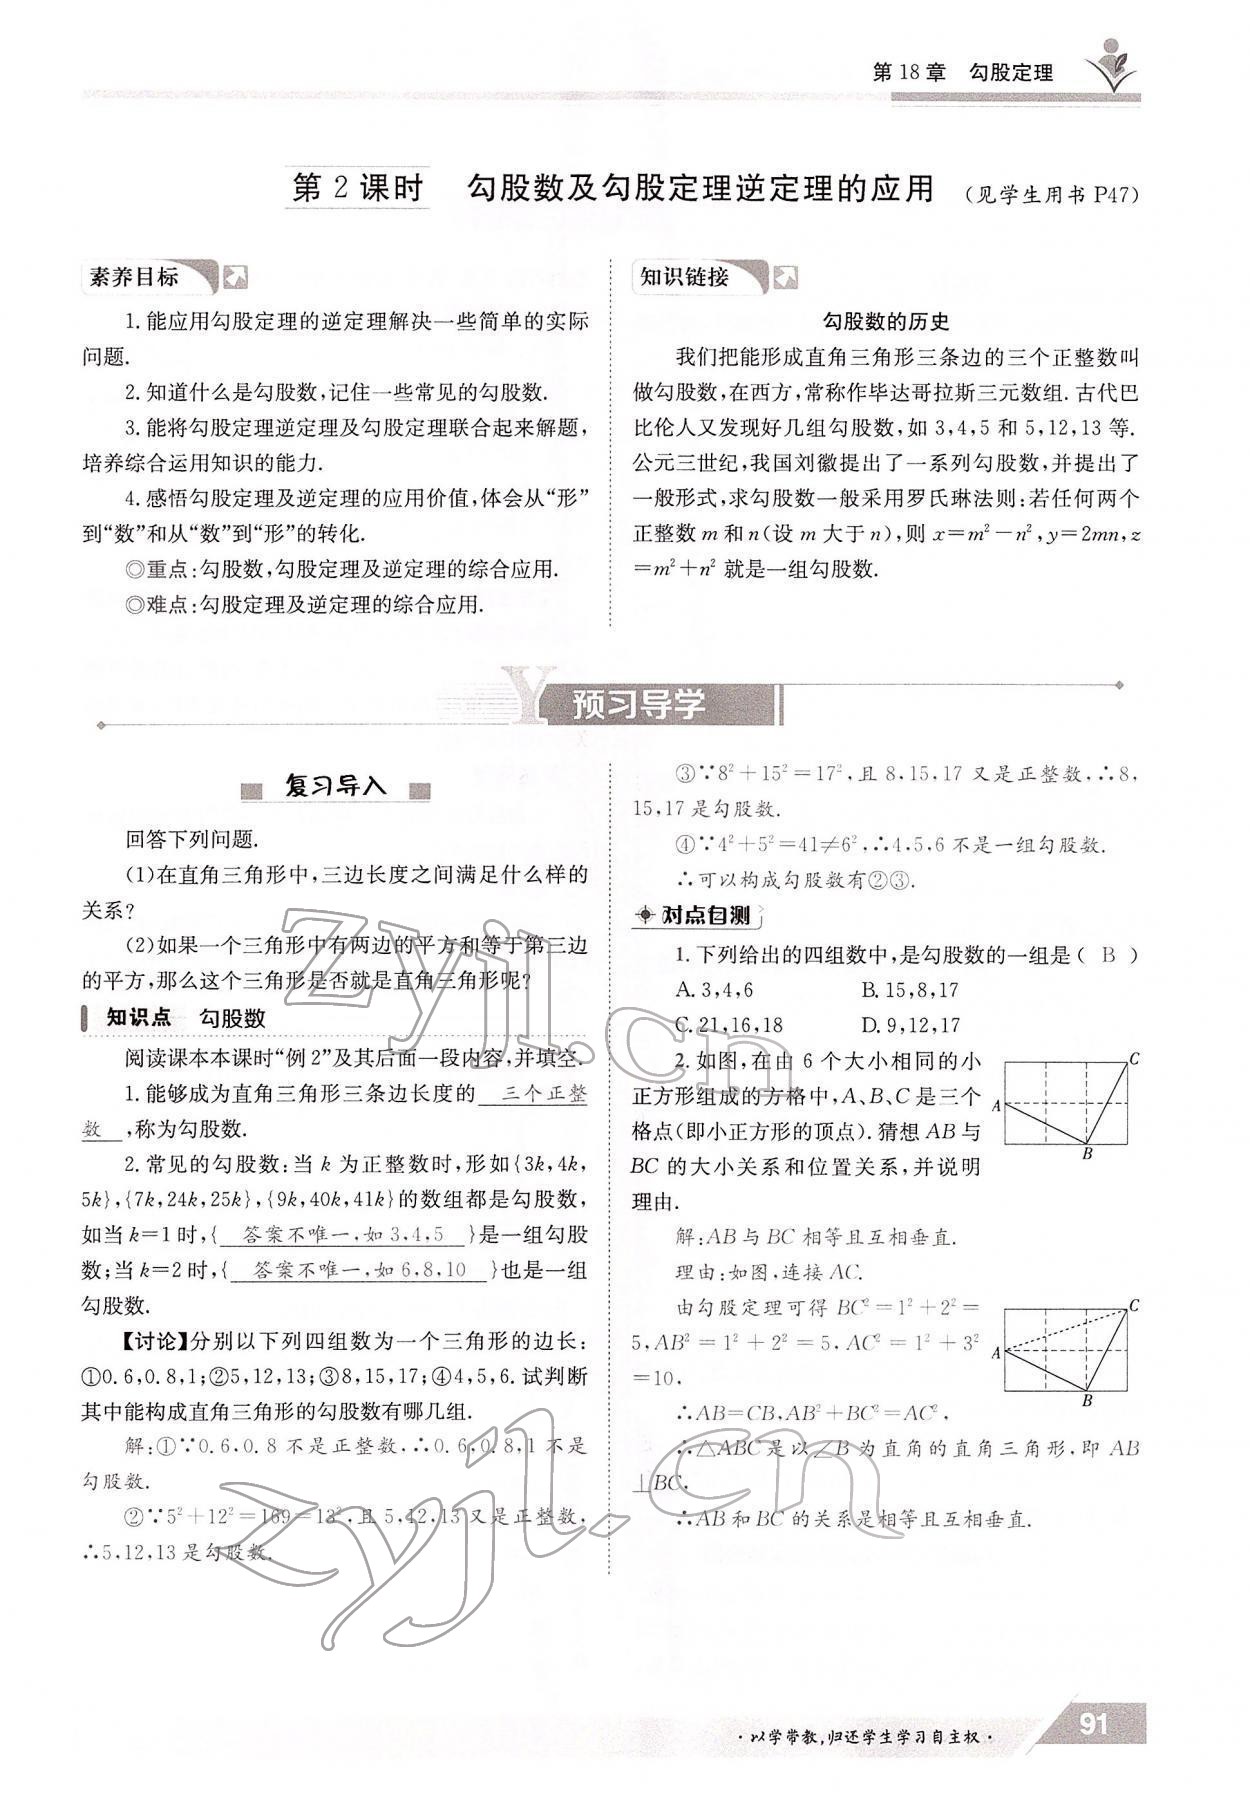 第18章 勾股定理
第2课时 勾股数及勾股定理逆定理的应用 (见学生用书 P47)
素养目标
1.能应用勾股定理的逆定理解决一些简单的实际
问题.
2.知道什么是勾股数,记住一些常见的勾股数.
3.能将勾股定理逆定理及勾股定理联合起来解题,
培养综合运用知识的能力.
4.感悟勾股定理及逆定理的应用价值,体会从“形”
到“数”和从“数”到“形”的转化.
◎重点:勾股数,勾股定理及逆定理的综合应用.
◎难点:勾股定理及逆定理的综合应用.
知识链接
勾股数的历史
我们把能形成直角三角形三条边的三个正整数叫
做勾股数,在西方,常称作毕达哥拉斯三元数组.古代巴
比伦人又发现好几组勾股数,如 3,4,5 和 5,12,13 等.
公元三世纪,我国刘徽提出了一系列勾股数,并提出了
一般形式,求勾股数一般采用罗氏琳法则:若任何两个
正整数 m 和 n(设 m 大于 n),则 x=m²-n²,y=2mn,z
=m²+n² 就是一组勾股数.
Y 预习导学
复习导入
回答下列问题.
(1)在直角三角形中,三边长度之间满足什么样的
关系?
(2)如果一个三角形中有两边的平方和等于第三边
的平方,那么这个三角形是否就是直角三角形呢?
知识点 勾股数
阅读课本本课时“例2”及其后面一段内容,并填空.
1.能够成为直角三角形三条边长度的 三个正整
数 ,称为勾股数.
2.常见的勾股数:当 k 为正整数时,形如{3k,4k,
5k},{7k,24k,25k},{9k,40k,41k}的数组都是勾股数,
如当 k=1 时,{ 答案不唯一,如 3,4,5 }是一组勾股
数;当 k=2 时,{ 答案不唯一,如 6,8,10 }也是一组
勾股数.
【讨论】分别以下列四组数为一个三角形的边长:
①0.6,0.8,1;②5,12,13;③8,15,17;④4,5,6.试判断
其中能构成直角三角形的勾股数有哪几组.
解:①∵0.6,0.8 不是正整数,∴0.6,0.8,1 不是
勾股数.
②∵5²+12²=169=13²,且 5,12,13 又是正整数,
∴5,12,13 是勾股数.
③∵8²+15²=17²,且 8,15,17 又是正整数,∴8,
15,17 是勾股数.
④∵4²+5²=41≠6²,∴4,5,6 不是一组勾股数.
∴可以构成勾股数有②③.
对点自测
1.下列给出的四组数中,是勾股数的一组是( B )
A.3,4,6 B.15,8,17
C.21,16,18 D.9,12,17
2.如图,在由 6 个大小相同的小
正方形组成的方格中,A、B、C 是三个
格点(即小正方形的顶点).猜想 AB 与
BC 的大小关系和位置关系,并说明
理由.
A
B
C
解:AB 与 BC 相等且互相垂直.
理由:如图,连接 AC.
由勾股定理可得 BC²=1²+2²=
5,AB²=1²+2²=5,AC²=1²+3²
=10,
A
B
C
∴AB=CB,AB²+BC²=AC²,
∴△ABC 是以∠B 为直角的直角三角形,即 AB
⊥BC,
∴AB 和 BC 的关系是相等且互相垂直.
zyjl.cn
zyjl.cn
·以学带教,归还学生学习自主权·
91